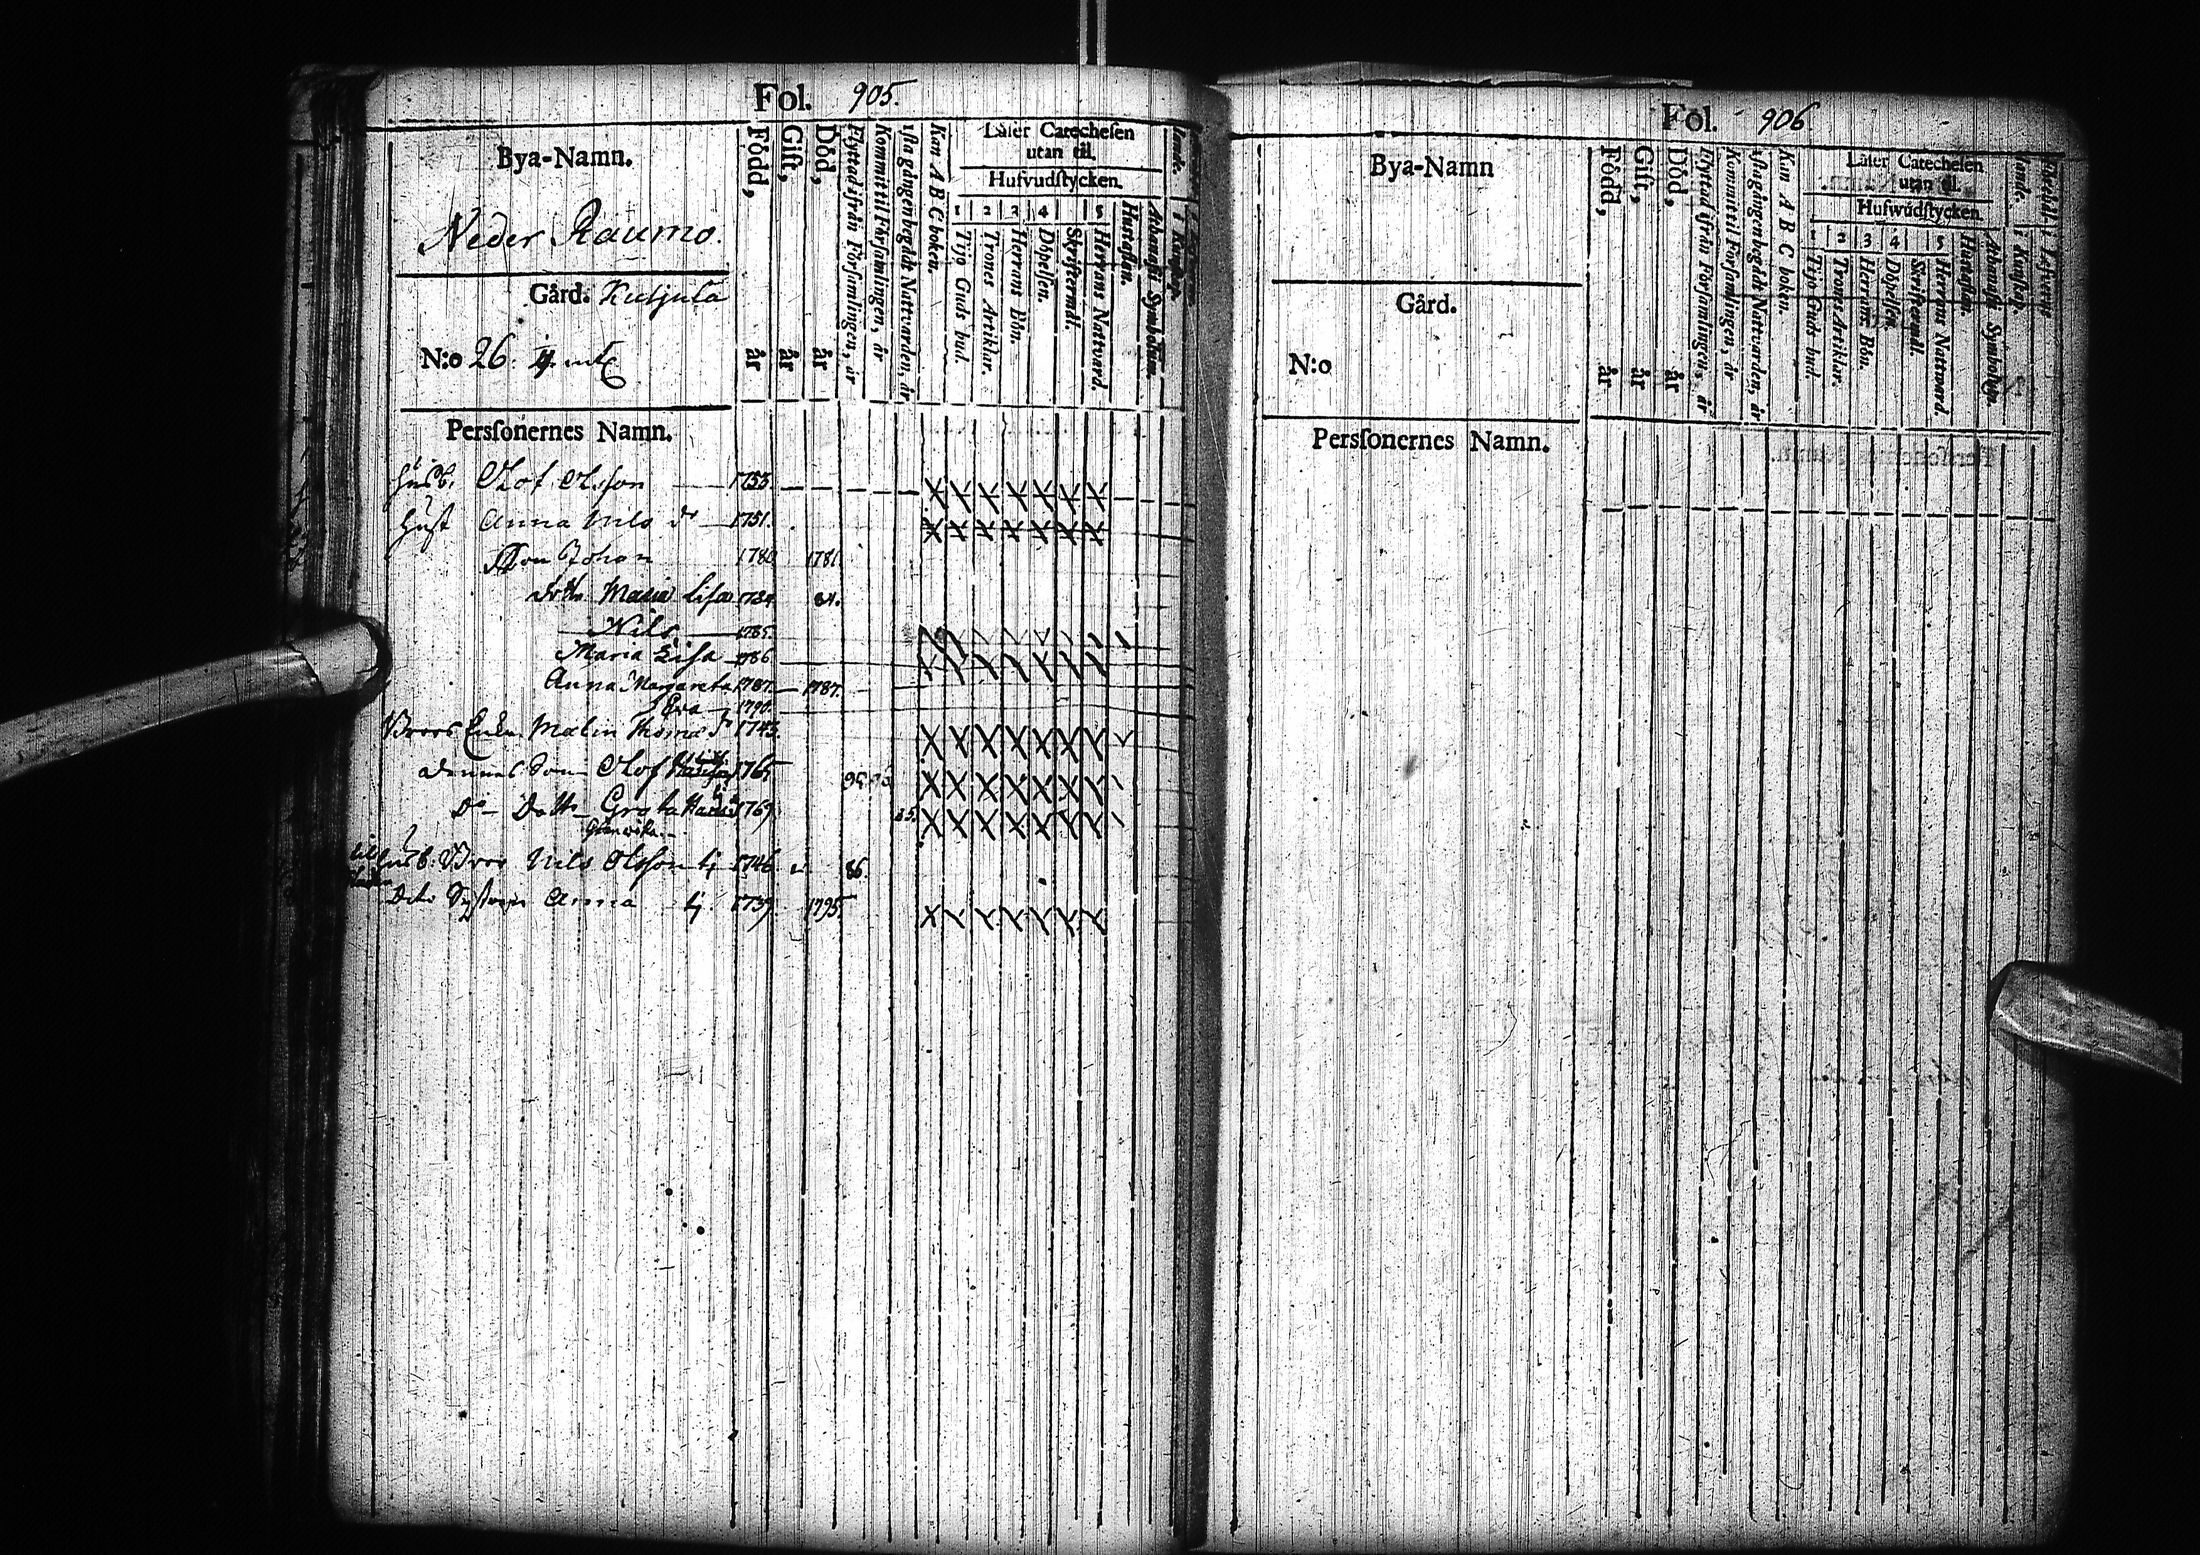 Fol. 905.
Bya-Namn.
Neder Raumo.
Gård. Kutjula
N:o 26.
Född, år
Gift, år
Död, år
Flyttad ifrån Församlingen, år
Kommit til Församlingen, år
1sta gången begådt Nattvarden, år
Kan A B C boken.
Läser Catechesen
utan til.
Hufvudstycken.
1 2 3 4 5
Tijo Guds bud.
Trones Artiklar.
Herrans Bön.
Döpelsen.
Skriftermål.
Herrans Nattvard.
Hustaflan.
Athanasii Symbolum.
Persſonernes Namn.
Husb. Olof Olsson 1753.
Hust Anna Nils dr 1751.
Son Johan 1780 1781
dottr Maria Lisa 1784. 84.
Nils 1785.
Maria Lisa 1786
Anna Margareta 1787. 1787.
Eva 1790.
Brors Enka Malin Thomæ dr 1743.
dennes Son Olof 1765
Do Dottr Greta 1769 85.
Husb. Bror Nils Olsson 1746 86.
Dito Syster Anna 1739. 1795.
Fol. 906
Bya-Namn
Gård.
N:o
Född, år
Gift, år
Död, år
Flyttad ifrån Församlingen, år
Kommit til Församlingen, år
1sta gången begådt Nattvarden, år
Kan A B C boken.
Läser Catechesen
utan til.
Hufwudstycken.
1 2 3 4 5
Tijo Guds bud.
Trones Artiklar.
Herrans Bön.
Döpelsen.
Skriftermål.
Herrans Nattward.
Hustaflan.
Athanasii Symbolum.
i Kunskap.
Persſonernes Namn.